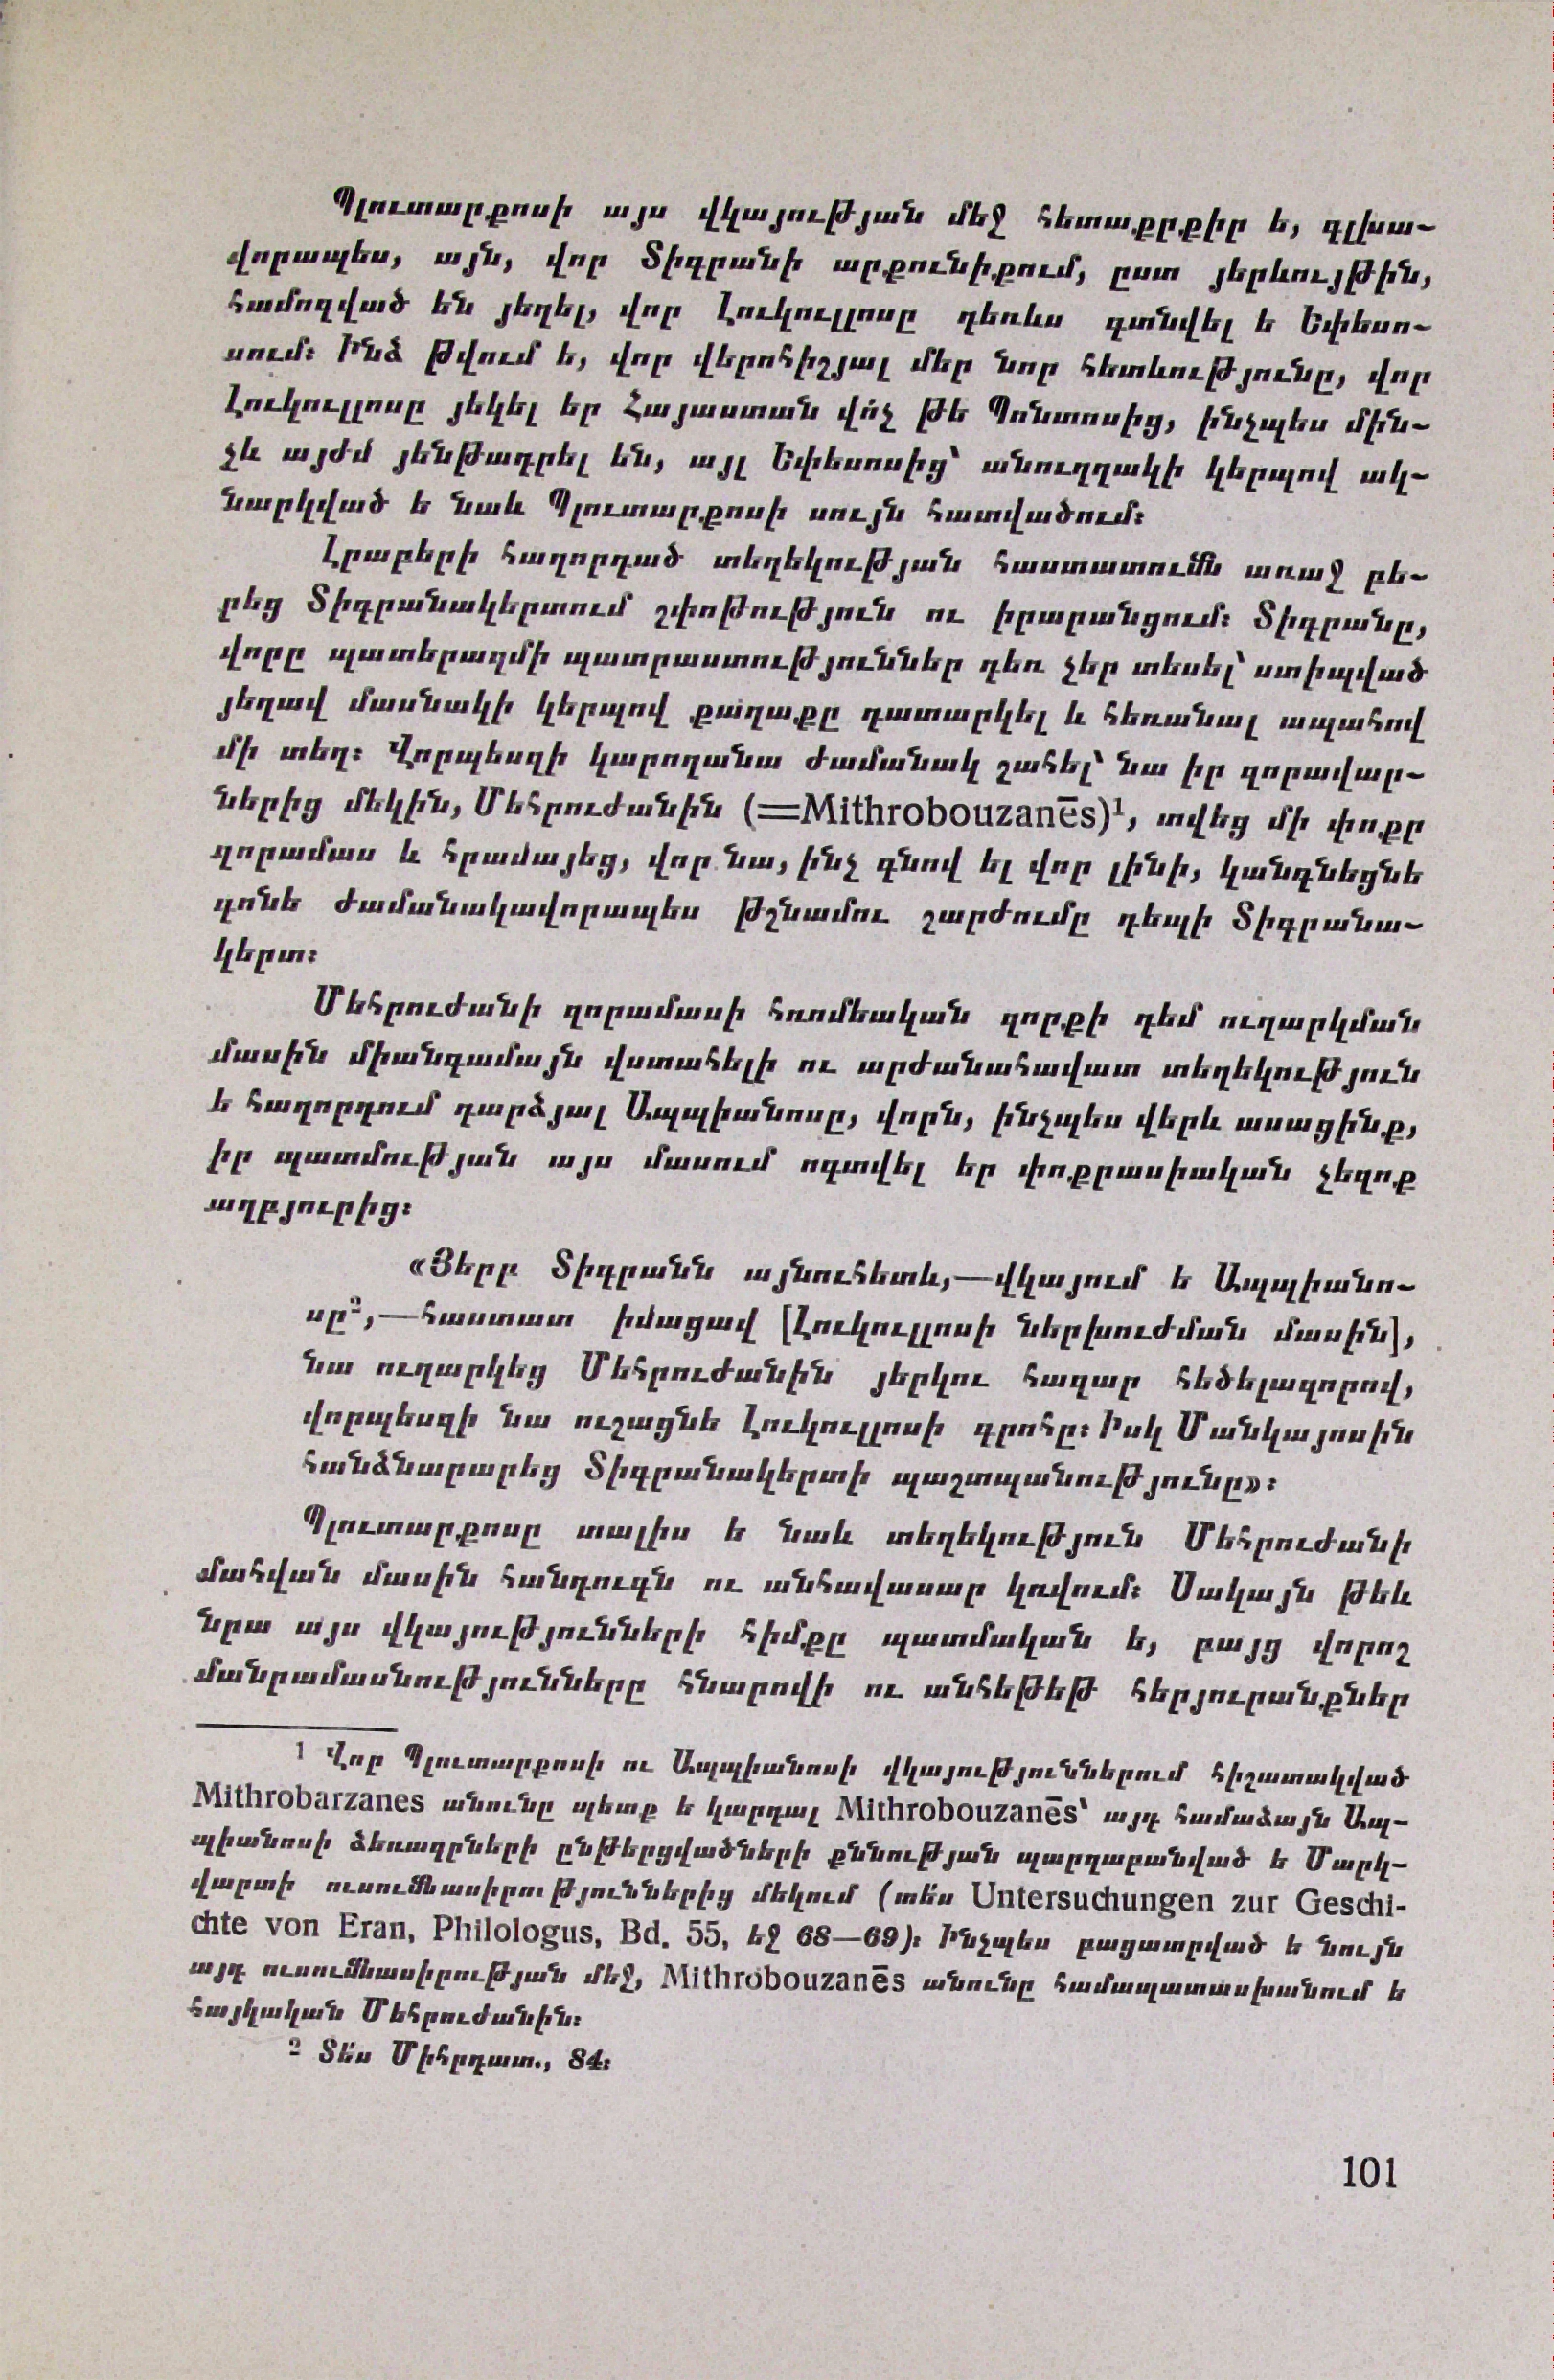 Պլուտարքոսի այս վկայության մեջ հետաքրքիր ե, գլխա-
վորապես, այն, վոր Տիգրանի արքունիքում, ըստ յերևույթին,
համոզված են յեղել, վոր Լուկուլլոսը դեռևս գտնվել ե Եփեսո-
սում։ Ինձ թվում ե, վոր վերոհիշյալ մեր նոր հետևությունը, վոր
Լուկուլլոսը յեկել եր Հայաստան վո՛չ թե Պոնտոսից, ինչպես մին-
չև այժմ յենթադրել են, այլ Եփեսոսից՝ անուղղակի կերպով ակ-
նարկված ե նաև Պլուտարքոսի սույն հատվածում։
Լրաբերի հաղորդած տեղեկության հաստատումն առաջ բե-
րեց Տիգրանակերտում շփոթություն ու իրարանցում։ Տիգրանը,
վորը պատերազմի պատրաստություններ դեռ չեր տեսել՝ ստիպված
յեղավ մասնակի կերպով քաղաքը դատարկել և հեռանալ ապահով
մի տեղ։ Վորպեսզի կարողանա ժամանակ շահել՝ նա իր զորավար-
ներից մեկին, Մեհրուժանին (=Mithrobouzanēs)¹, տվեց մի փոքր
զորամաս և հրամայեց, վոր նա, ինչ գնով ել վոր լինի, կանգնեցնե
գոնե ժամանակավորապես թշնամու շարժումը դեպի Տիգրանա-
կերտ։
Մեհրուժանի զորամասի հռոմեական զորքի դեմ ուղարկման
մասին միանգամայն վստահելի ու արժանահավատ տեղեկություն
ե հաղորդում դարձյալ Ապպիանոսը, վորն, ինչպես վերև ասացինք,
իր պատմության այս մասում ոգտվել եր փոքրասիական չեզոք
աղբյուրից։
«Յերբ Տիգրանն այնուհետև,—վկայում ե Ապպիանո-
սը²,—հաստատ իմացավ [Լուկուլլոսի ներխուժման մասին],
նա ուղարկեց Մեհրուժանին յերկու հազար հեծելազորով,
վորպեսզի նա ուշացնե Լուկուլլոսի գրոհը։ Իսկ Մանկայոսին
հանձնարարեց Տիգրանակերտի պաշտպանությունը»։
Պլուտարքոսը տալիս ե նաև տեղեկություն Մեհրուժանի
մահվան մասին հանդուգն ու անհավասար կռվում։ Սակայն թեև
նրա այս վկայությունների հիմքը պատմական ե, բայց վորոշ
մանրամասնությունները հնարովի ու անհեթեթ հերյուրանքներ
1 Վոր Պլուտարքոսի ու Ապպիանոսի վկայություններում հիշատակված
Mithrobarzanes անունը պետք ե կարդալ Mithrobouzanēs՝ այդ համաձայն Ապ-
պիանոսի ձեռագրների ընթերցվածների քննության պարզաբանված ե Մարկ-
վարտի ուսումնասիրություններից մեկում (տե՛ս Untersuchungen zur Geschi-
chte von Eran, Philologus, Bd. 55, եջ 68—69)։ Ինչպես բացատրված ե նույն
այդ ուսումնասիրության մեջ, Mithrobouzanēs անունը համապատասխանում ե
հայկական Մեհրուժանին։
2 Տե՛ս Միհրդատ., 84։
101